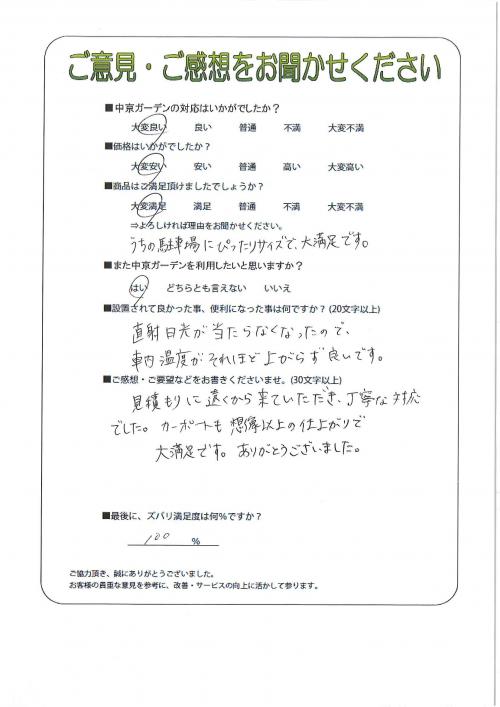 ご意見・ご感想をお聞かせください
■中京ガーデンの対応はいかがでしたか？
大変良い　良い　普通　不満　大変不満
■価格はいかがでしたか？
大変安い　安い　普通　高い　大変高い
■商品はご満足頂けましたでしょうか？
大変満足　満足　普通　不満　大変不満
⇒よろしければ理由をお聞かせください。
うちの駐車場にぴったりサイズで、大満足です。
■また中京ガーデンを利用したいと思いますか？
はい　どちらとも言えない　いいえ
■設置されて良かった事、便利になった事は何ですか？(20文字以上)
直射日光が当たらなくなったので、
車内温度がそれほど上がらず良いです。
■ご感想・ご要望などをお書きくださいませ。(30文字以上)
見積もりに遠くから来ていただき、丁寧な対応
でした。カーポートも想像以上の仕上がりで
大満足です。ありがとうございました。
■最後に、ズバリ満足度は何%ですか？
100 %
ご協力頂き、誠にありがとうございました。
お客様の貴重な意見を参考に、改善・サービスの向上に活かして参ります。